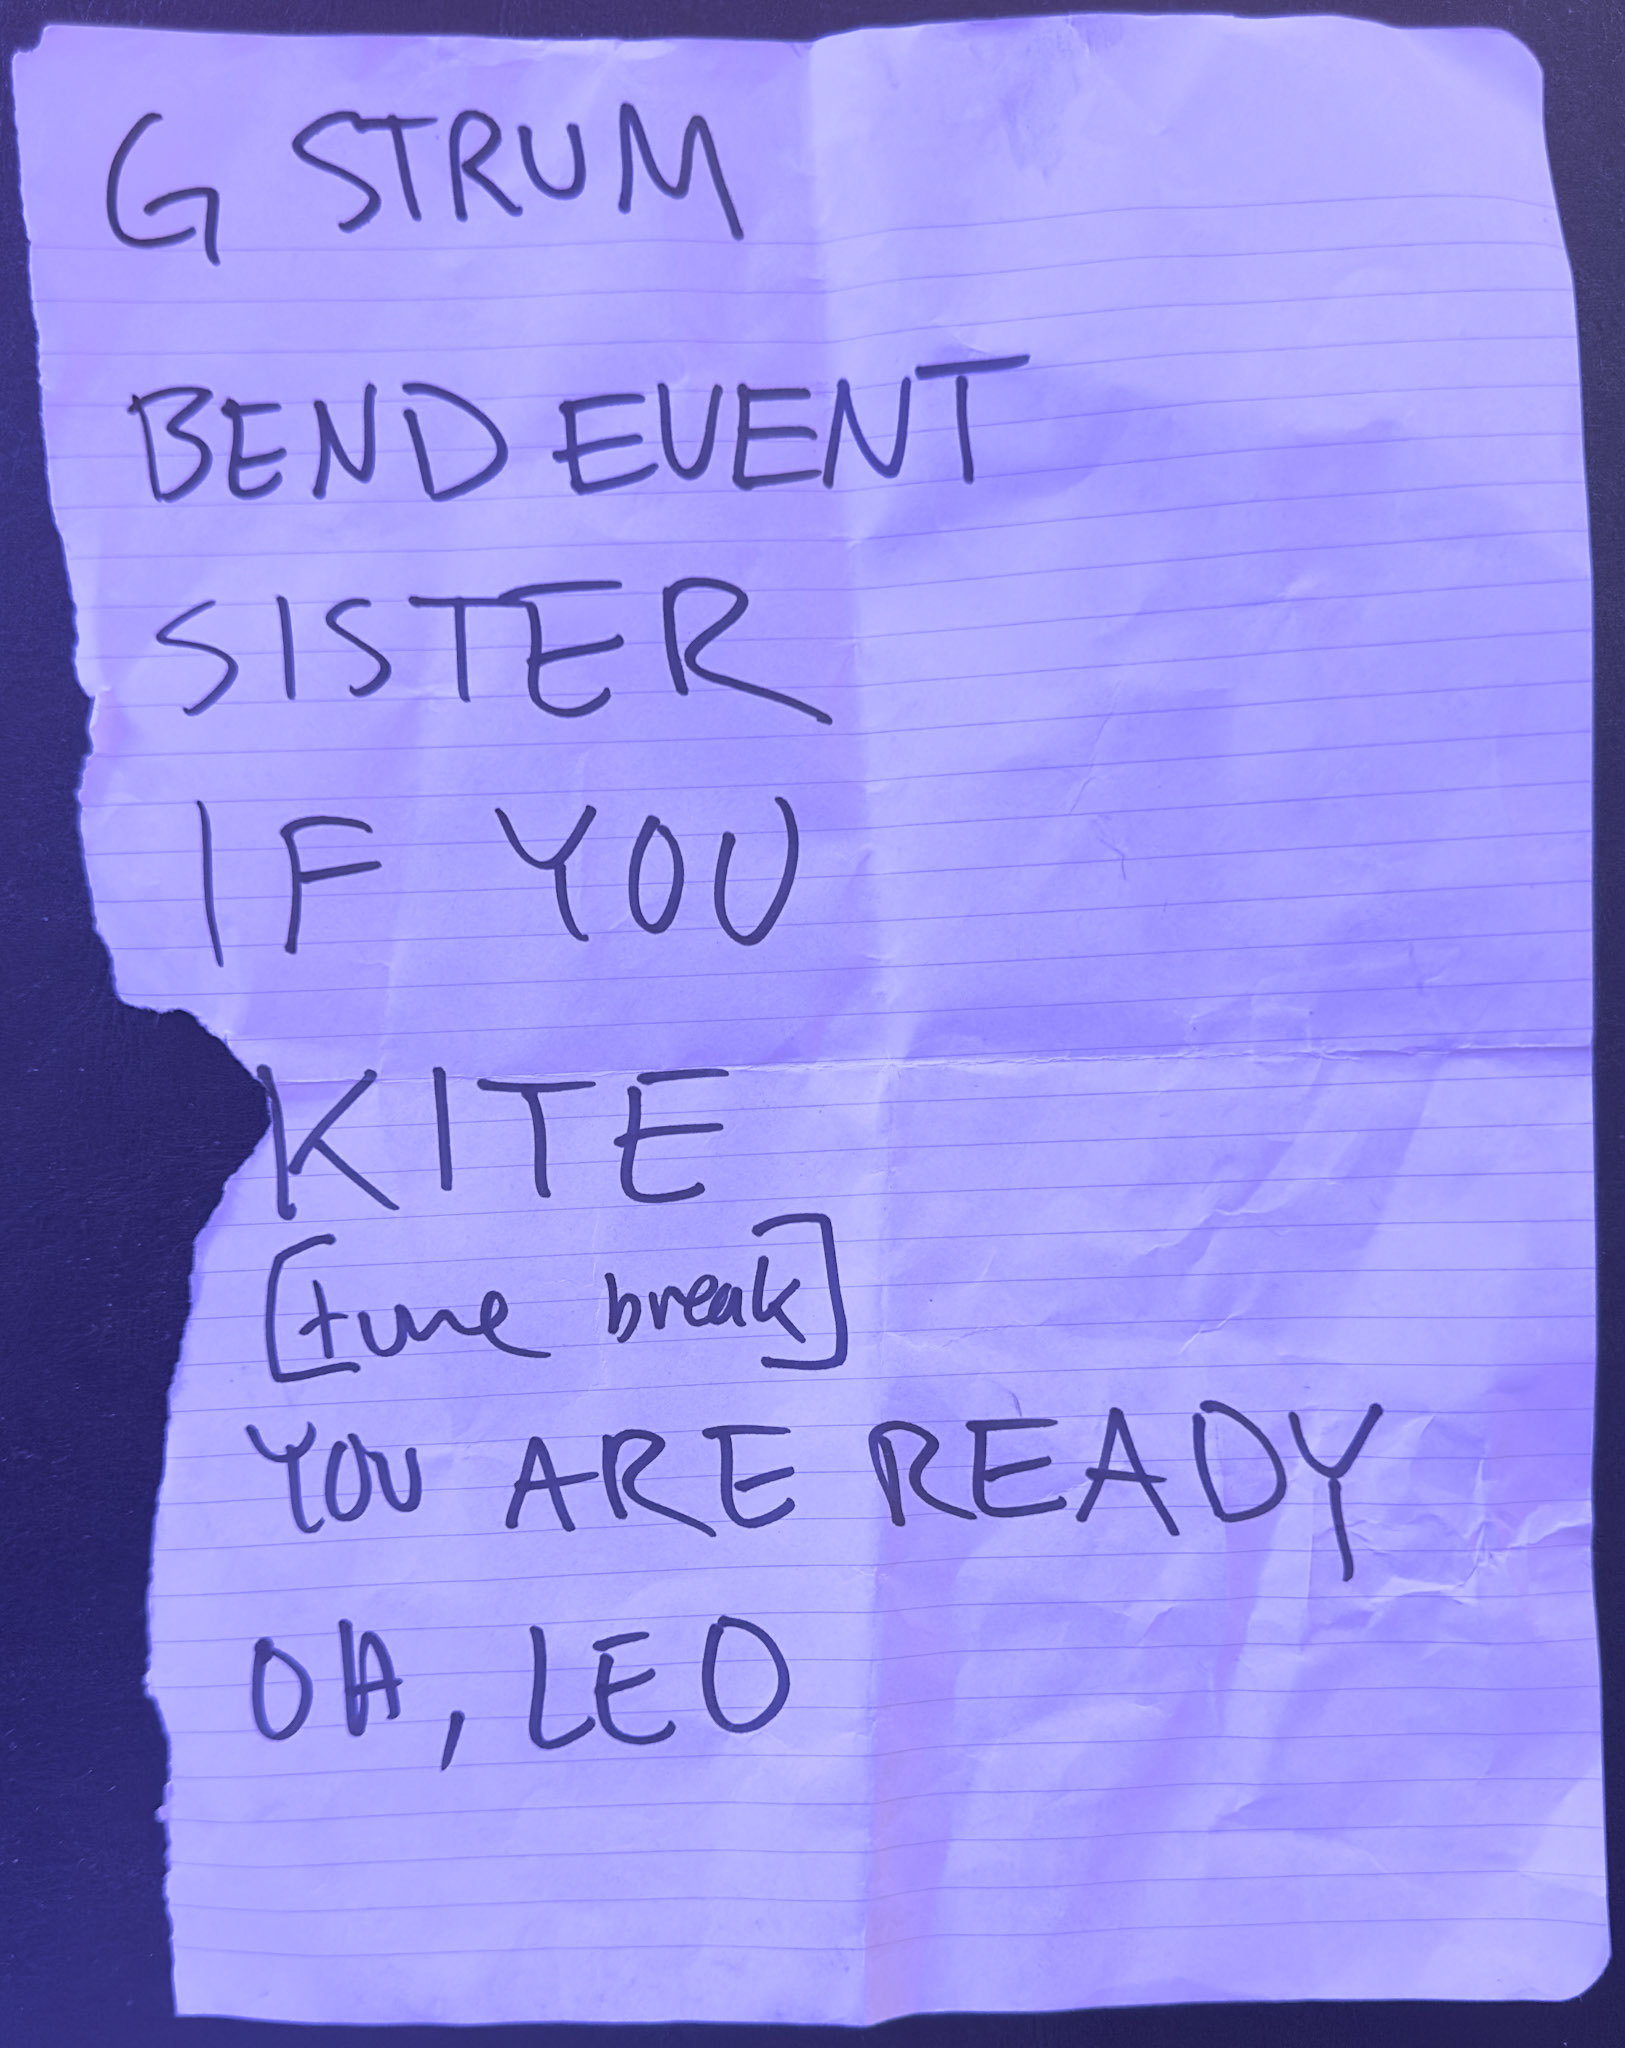 G STRUM
BEND EVENT
SISTER
IF YOU
KITE
[tune break]
YOU ARE READY
OH, LEO